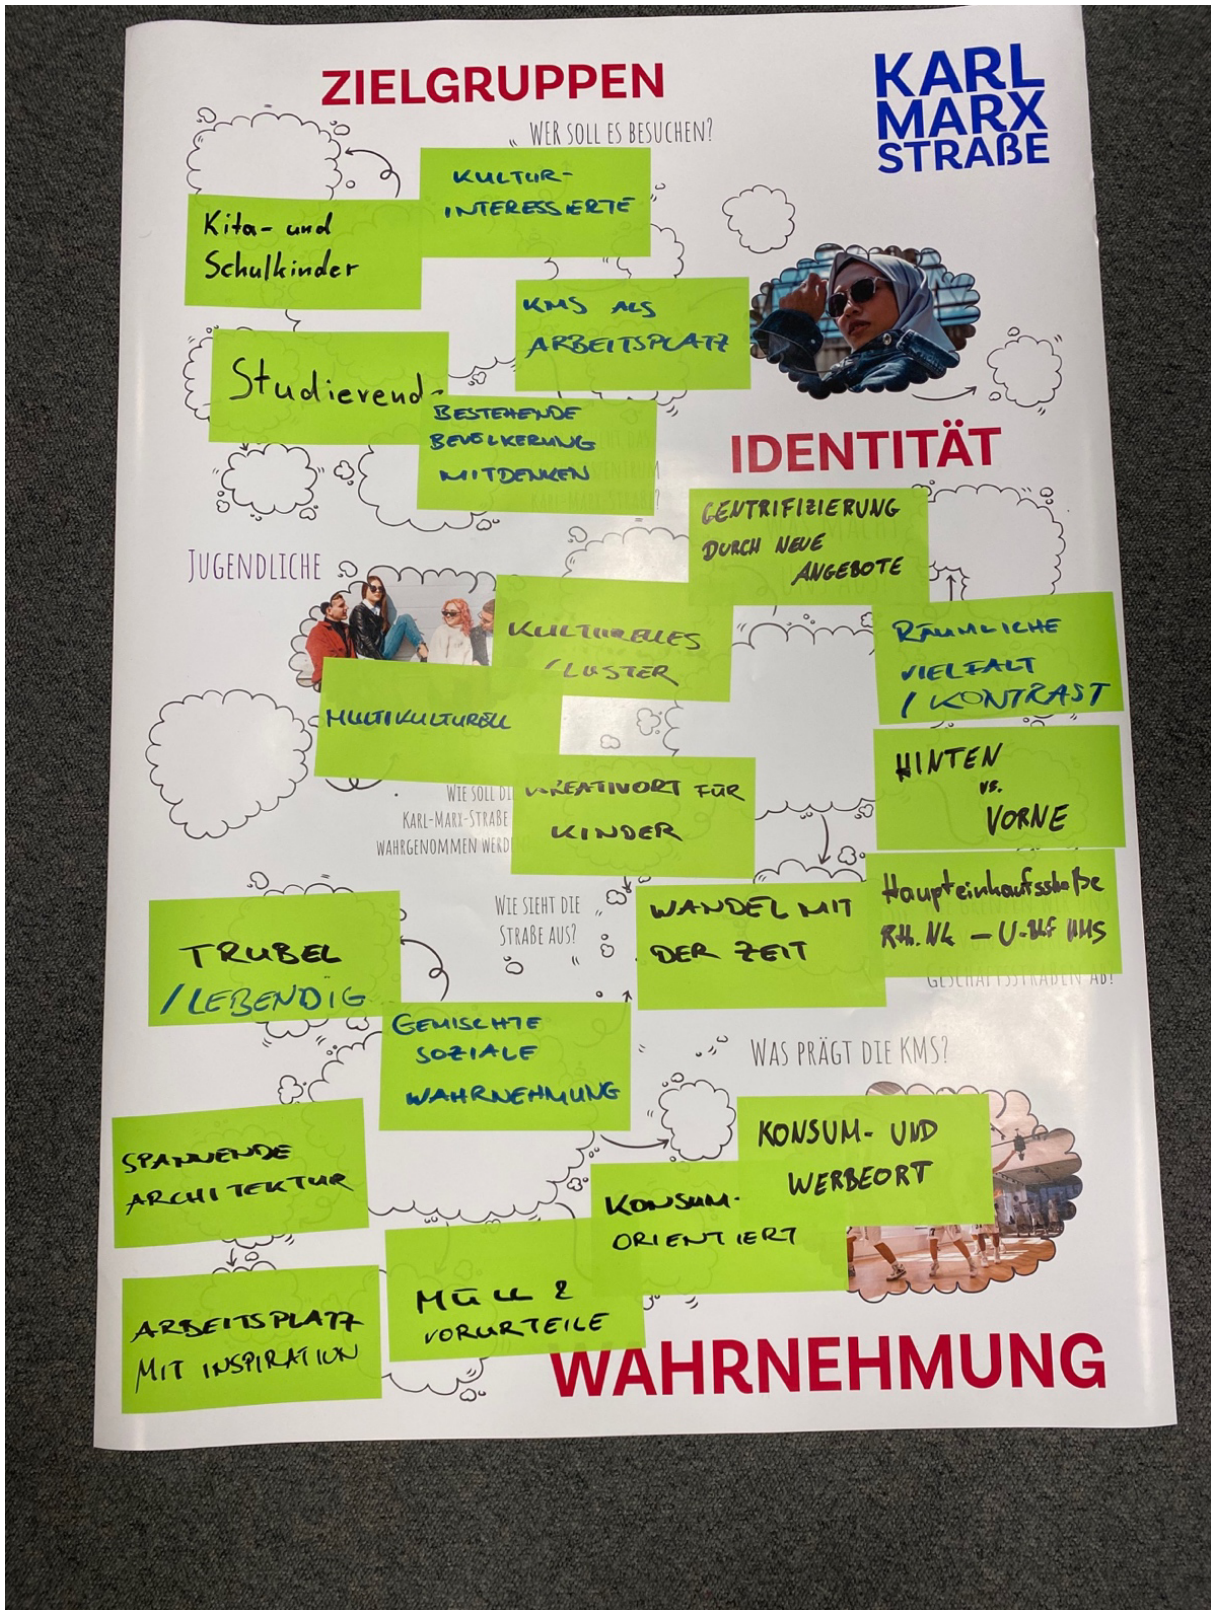 ZIELGRUPPEN
KARL
MARX
STRAßE
WER SOLL ES BESUCHEN?
KULTUR-
INTERESSIERTE
Kita- und
Schulkinder
KMS ALS
ARBEITSPLATZ
Studierend
BESTEHENDE
BEVÖLKERUNG
MITDENKEN
IDENTITÄT
GENTRIFIZIERUNG
DURCH NEUE
ANGEBOTE
JUGENDLICHE
KULTURELLES
CLUSTER
RÄUMLICHE
VIELFALT
/ KONTRAST
MULTIKULTURELL
HINTEN
vs.
VORNE
KREATIVORT FÜR
KINDER
WIE SOLL DIE
KARL-MARX-STRAßE
WAHRGENOMMEN WERD
WIE SIEHT DIE
STRAßE AUS?
WANDEL MIT
DER ZEIT
Haupteinkaufsstraße
Rth. Nk - U-Bhf KMS
GESCHÄFTSSTRAßEN AB?
TRUBEL
/ LEBENDIG
GEMISCHTE
SOZIALE
WAHRNEHMUNG
WAS PRÄGT DIE KMS?
SPANNENDE
ARCHITEKTUR
KONSUM- UND
WERBEORT
KONSUM-
ORIENTIERT
MÜLL &
VORURTEILE
ARBEITSPLATZ
MIT INSPIRATION
WAHRNEHMUNG